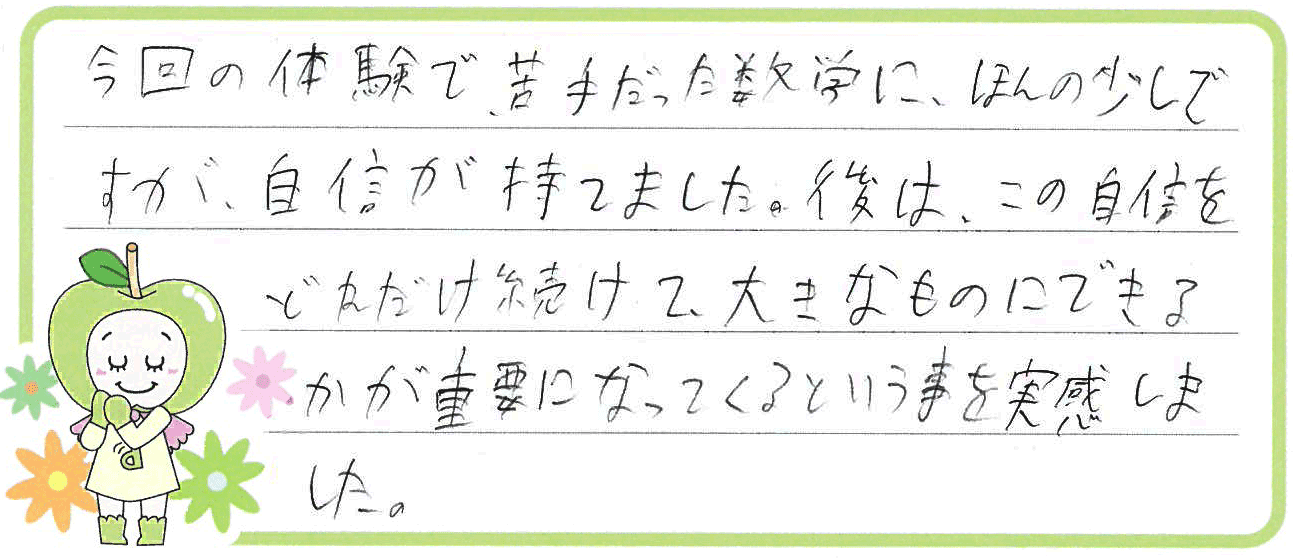 今回の体験で、苦手だった数学に、ほんの少しで
すが、自信が持てました。後は、この自信を
どれだけ続けて、大きなものにできる
かが重要になってくるという事を実感しま
した。